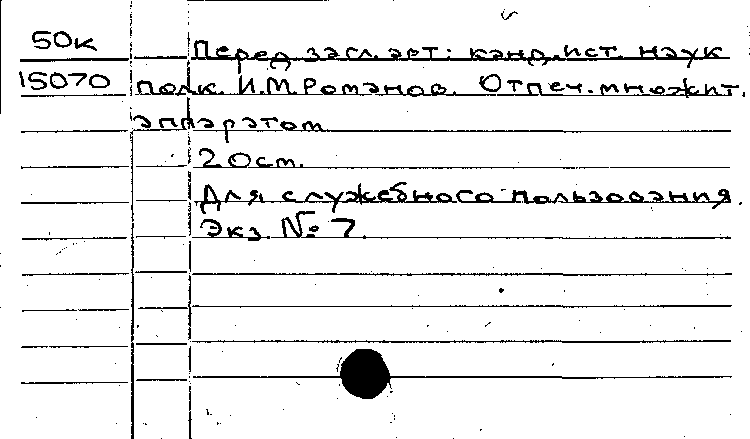 50к Перед загл. авт: канд. ист. наук
15070 полк. И.М. Романов. Отпеч. множит.
аппаратом
20см.
Для служебного пользования.
Экз. № 7.